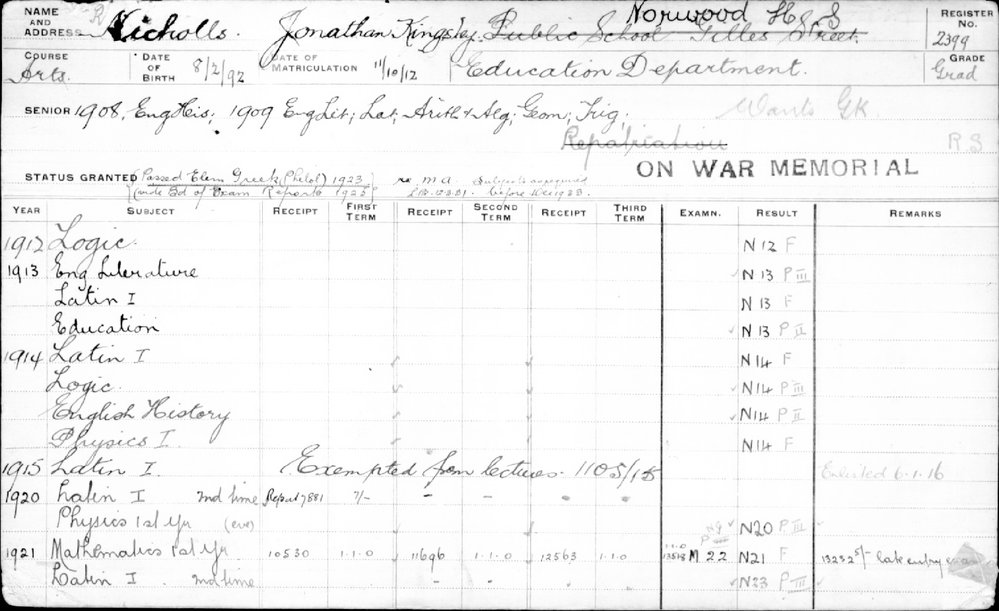 NAME AND ADDRESS Nicholls. Jonathan Kingsley. Public School Gilles Street. Norwood H S REGISTER No. 2399
COURSE Arts. DATE OF BIRTH 8/2/92 DATE OF MATRICULATION 11/10/12 Education Department. GRADE Grad
SENIOR 1908, Eng His; 1909 Eng Lit; Lat; Arith & Alg; Geom; Trig; Wants GK
Repatriation R S
ON WAR MEMORIAL
STATUS GRANTED (Passed Elem Greek (Philol) 1923 re M A Subjects
(vide Bd of Exam Reports 1925 before
YEAR SUBJECT RECEIPT FIRST TERM RECEIPT SECOND TERM RECEIPT THIRD TERM EXAMN. RESULT REMARKS
1912 Logic N 12 F
1913 Eng Literature N 13 P III
Latin I N 13 F
Education N 13 P II
1914 Latin I N14 F
Logic. N14 P III
English History N14 P II
Physics I N14 F
1915 Latin I. Exempted from lectures. 1105/15 Enlisted 6.1.16
1920 Latin I 2nd time Repat 7881 7/- - - - -
Physics 1st yr (eve) N20 P III
1921 Mathematics 1st yr. 10530 1.1.0 11696 1.1.0 12563 1.1.0 1.1.0 13578 M 22 N21 F 13232 5/- late entry exam
Latin I. 2nd time - - - - - N23 P III